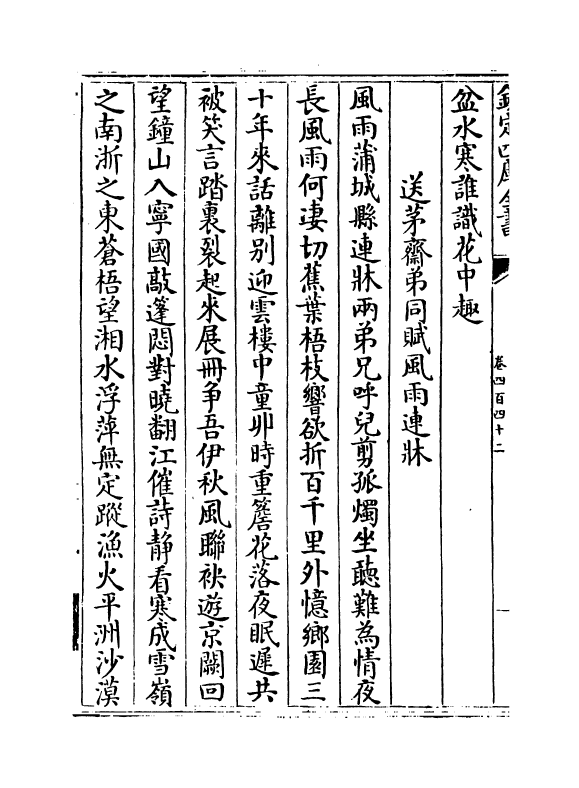 欽定四庫全書
卷四百四十二
盆水寒誰識花中趣
送茅齋弟同賦風雨連牀
風雨蒲城縣連牀兩弟兄呼兒剪孤燭坐聽難為情夜
長風雨何凄切蕉葉梧枝響欲折百千里外憶鄉園三
十年來話離別迎雲樓中童丱時重簷花落夜眠遲共
被笑言踏裏裂起來展冊爭吾伊秋風聯袂遊京闕回
望鐘山入寧國敲篷悶對曉翻江催詩静看寒成雪嶺
之南浙之東蒼梧望湘水浮萍無定蹤漁火平洲沙漠